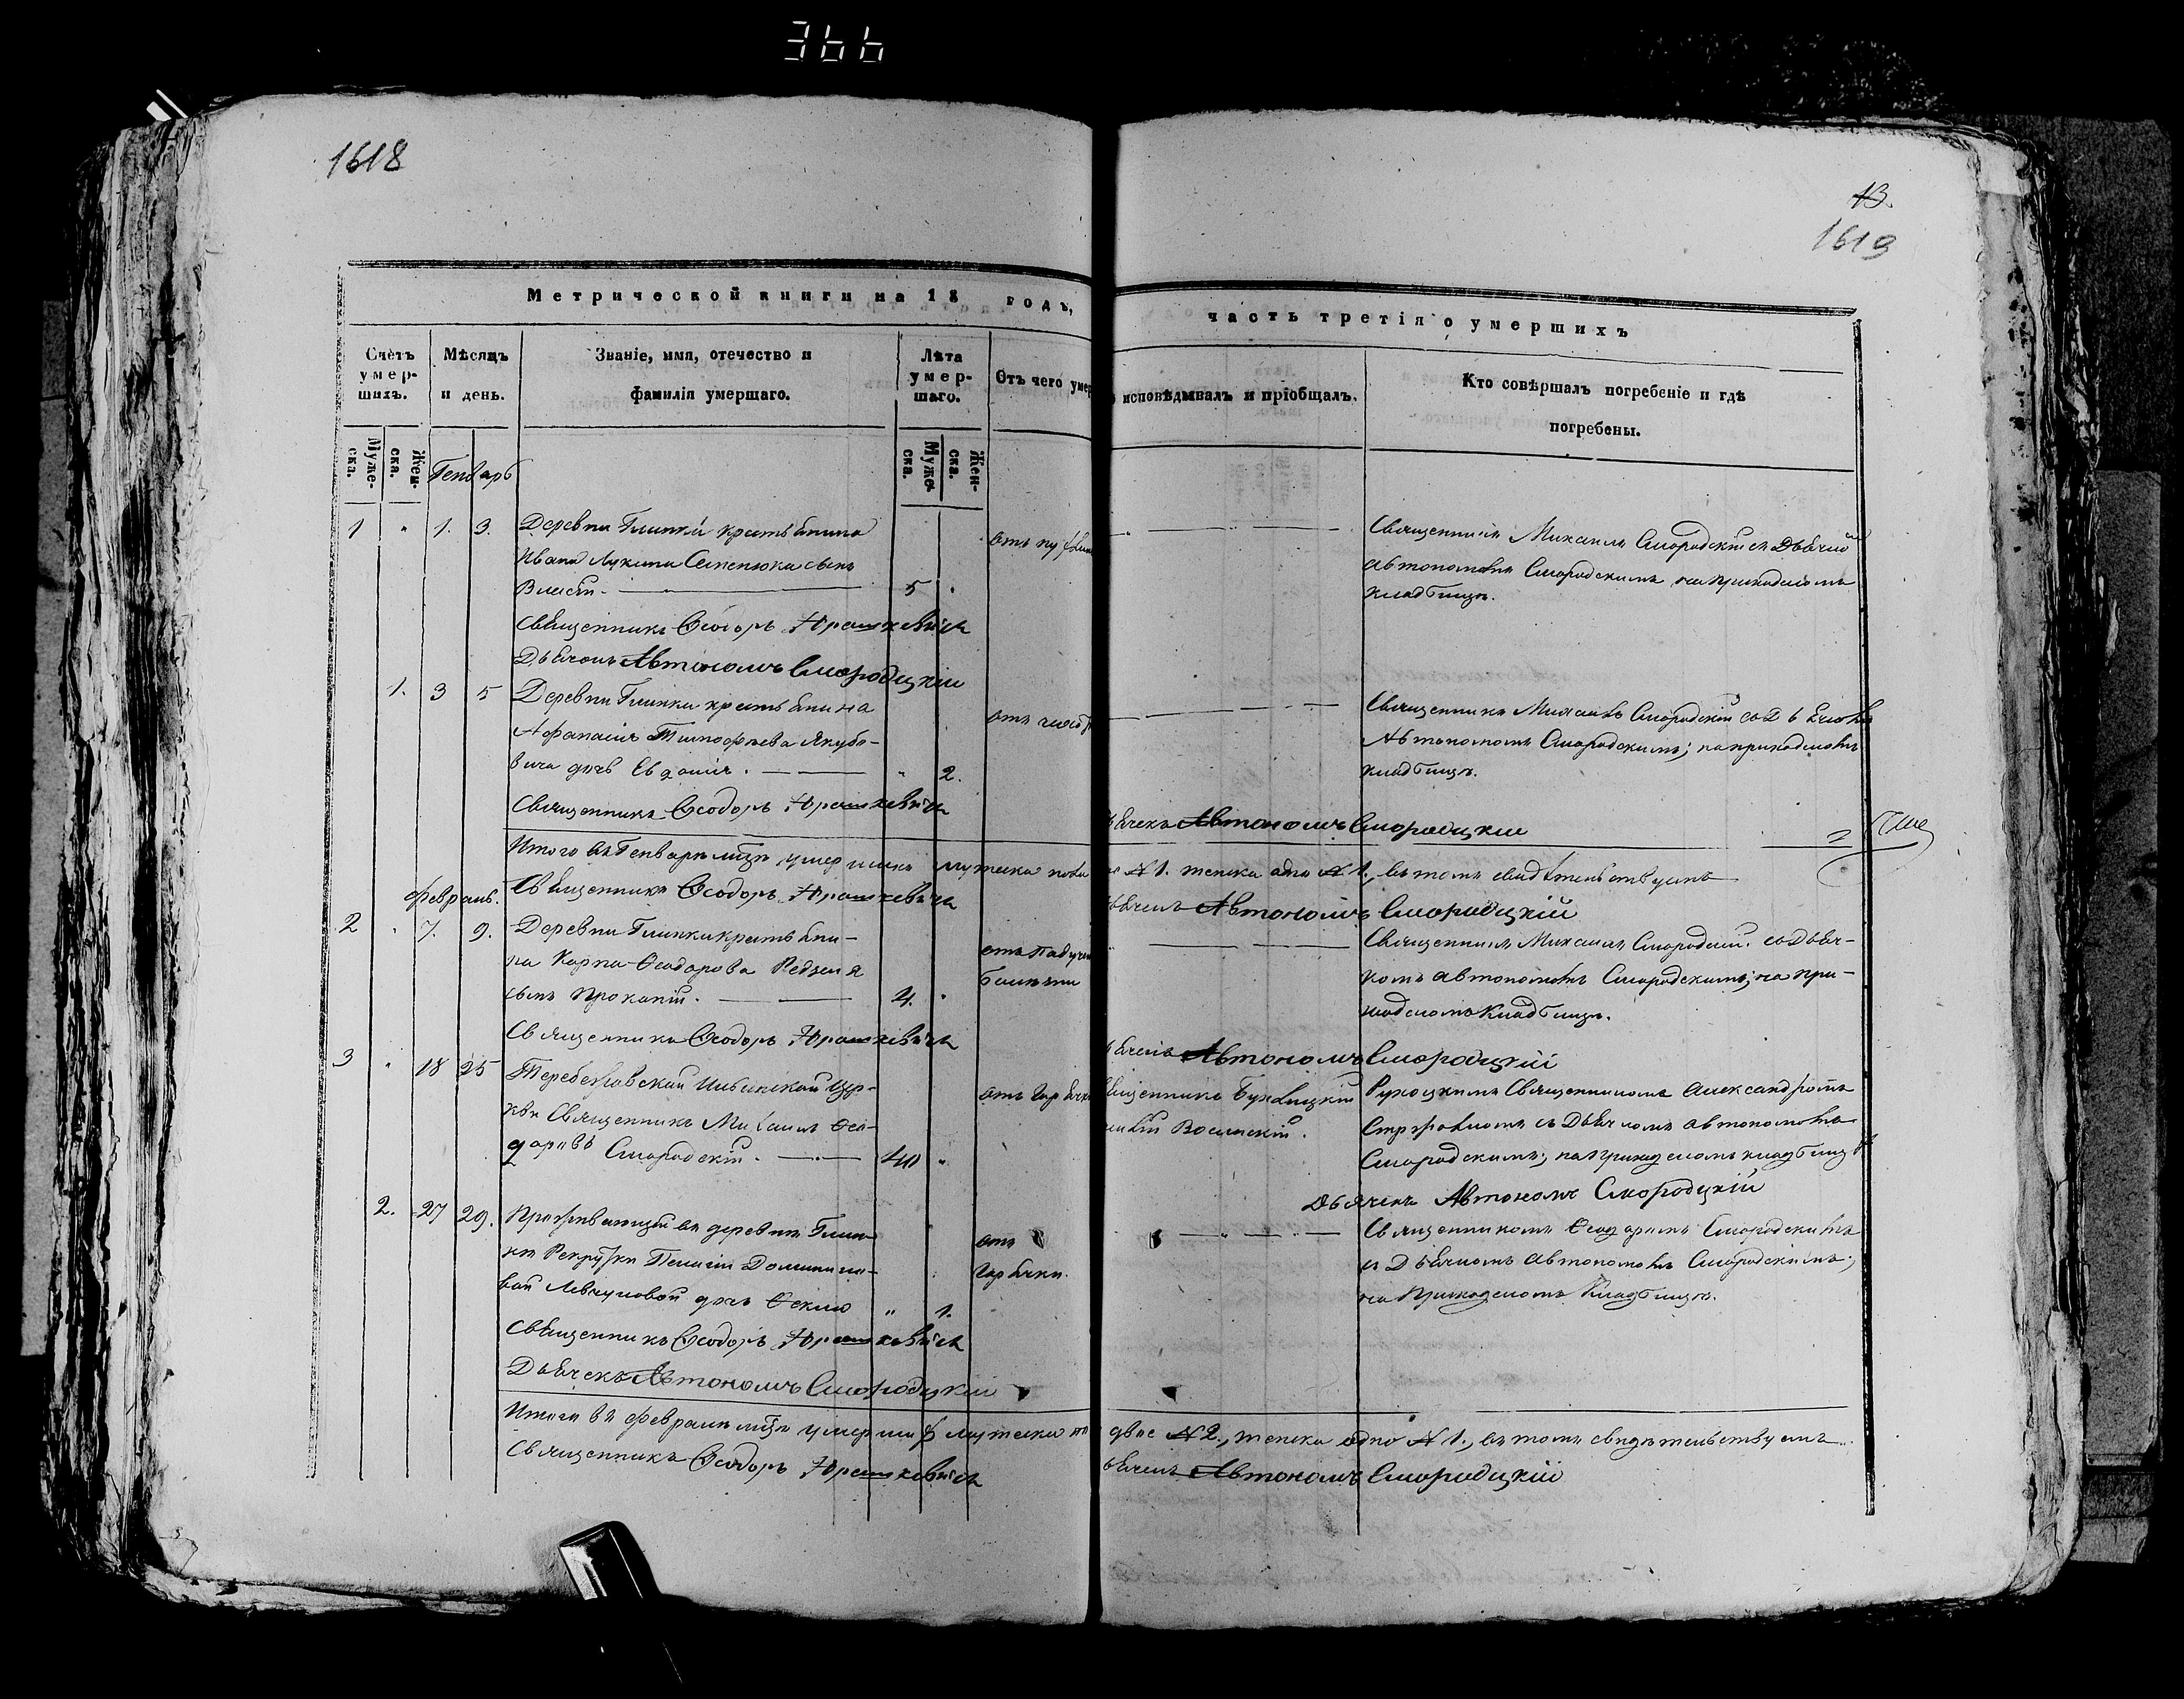 366
1618
13.
1619
Метрической книги на 18 годъ,
часть третія о умершихъ
Счетъ умер-шихъ.
Мѣсяцъ и день.
Званіе, имя, отечество и фамилія умершаго.
Лѣта умер-шаго.
Отъ чего умер
исповѣдывалъ и пріобщалъ.
Кто совѣршалъ погребеніе и гдѣ погребены.
Муже-ска.
Жен-ска.
Муже-ска.
Жен-ска.
Генварь
1 " 1. 3. Деревни Глинки крестьянина
Ивана Лукина Семенюка сынъ
5 "
Священникъ Михаилъ Смородскій съ Дьячко
Автономомъ Смородскимъ на приходскомъ
кладбищѣ.
Священникъ Ѳеодоръ Юрашкевичъ
Дьячокъ Автономъ Смородцкій
1. 3 5 Деревни Глинки крестьянина
Афанасія Тимофѣева Якубо-
вича дочь Евдокія. " 2.
Священникъ Михаилъ Смородскій со Дьячкомъ
Автономомъ Смородскимъ; на приходскомъ
кладбищѣ.
Священникъ Ѳеодоръ Юрашкевичъ
Дьячекъ Автономъ Смородцкій
2
Итого въ Генварѣ мцѣ умершихъ мужеска пола
N 1. женска одна N 1., въ томъ свидѣтельствуемъ
Священникъ Ѳеодоръ Юрашкевичъ
Дьячекъ Автономъ Смородцкій
Февраль.
2 " 7. 9. Деревни Глинки крестьяни-
на Карпа Ѳеодорова Редзеля
сынъ Прокопій. 4. "
отъ падучей
болѣзни
Священникъ Михаилъ Смородскій со Дьяч-
комъ Автономомъ Смородскимъ; на при-
ходскомъ кладбищѣ.
Священникъ Ѳеодоръ Юрашкевичъ
Дьячекъ Автономъ Смородцкій
3 " 18 25 Теребежовской Ильинской Цер-
кви Священникъ Михаилъ Ѳео-
доровъ Смородскій. 40 "
отъ горячки
Священникъ
Священникомъ Александромъ
съ Дьячкомъ Автономомъ
Смородскимъ; на приходскомъ кладбищѣ
Дьячекъ Автономъ Смородцкій
2. 27 29. Проживающей въ деревнѣ Глин-
кѣ Рекрутки Пелагіи Доминико-
вой Левчуковой дочь Ѳекла " 1.
отъ
горячки.
Священникомъ Ѳеодоромъ Смородскимъ
съ Дьячкомъ Автономомъ Смородскимъ;
на приходскомъ кладбищѣ.
Священникъ Ѳеодоръ Юрашкевичъ
Дьячекъ Автономъ Смородцкій
Итого въ Февралѣ мцѣ умерших мужеска
двое N 2., женска одно N 1., въ томъ свидѣтельствуемъ
Священникъ Ѳеодоръ Юрашкевичъ
Дьячекъ Автономъ Смородцкій